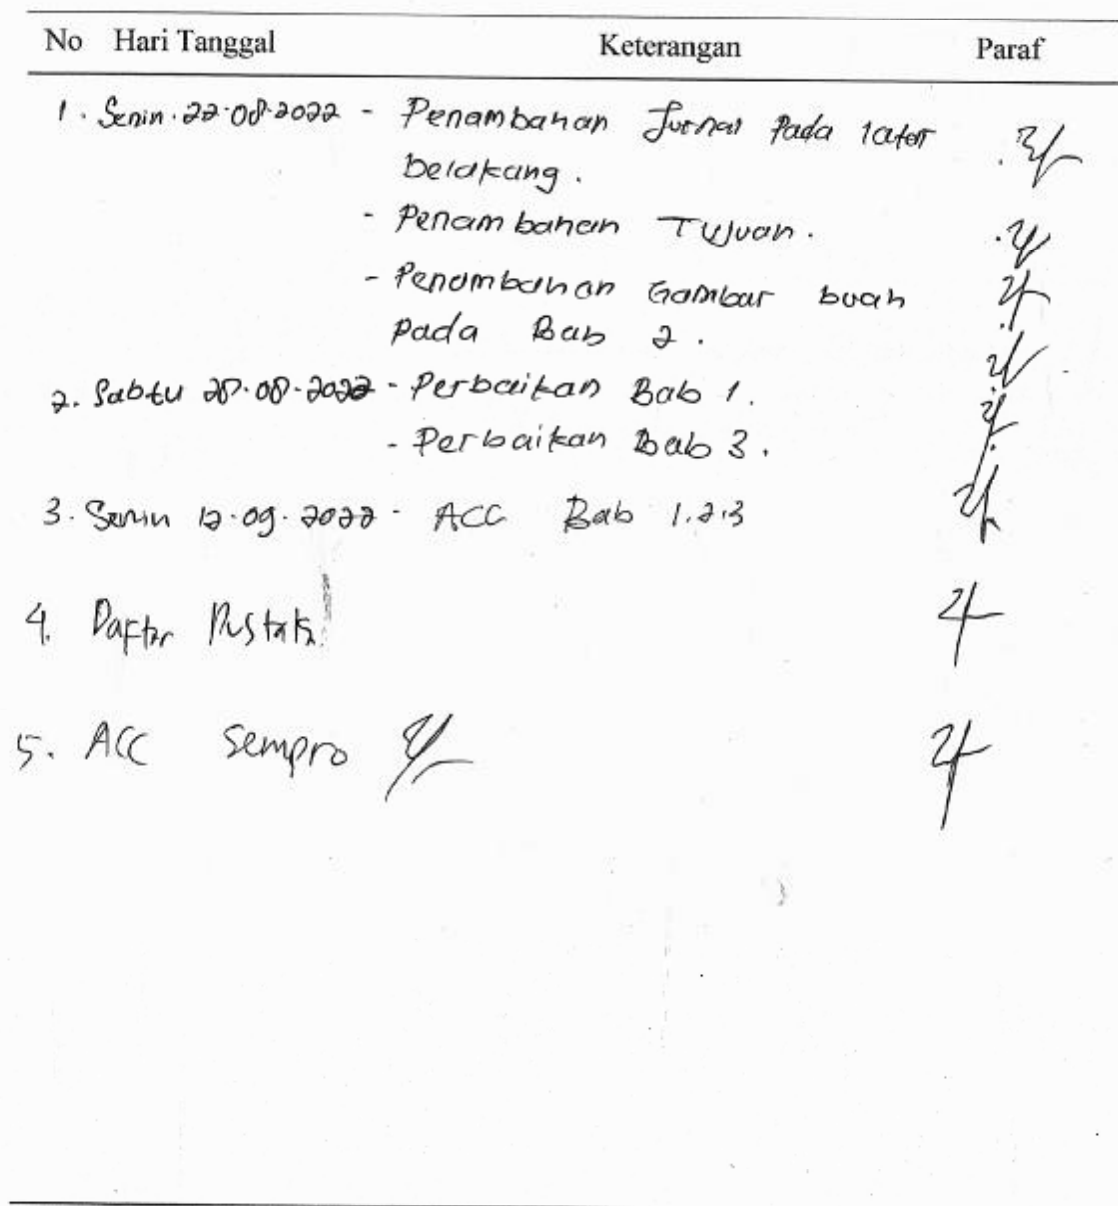 No Hari Tanggal Keterangan Paraf
1. Senin. 22.08.2022 - Penambahan Jurnal Pada latar
belakang.
- Penambahan Tujuan.
- Penambahan Gambar buah
pada Bab 2.
2. Sabtu 28.08.2022 - Perbaikan Bab 1.
- Perbaikan Bab 3.
3. Senin 12.09.2022 - ACC Bab 1.2.3
4. Daftar Pustaka
5. ACC Sempro